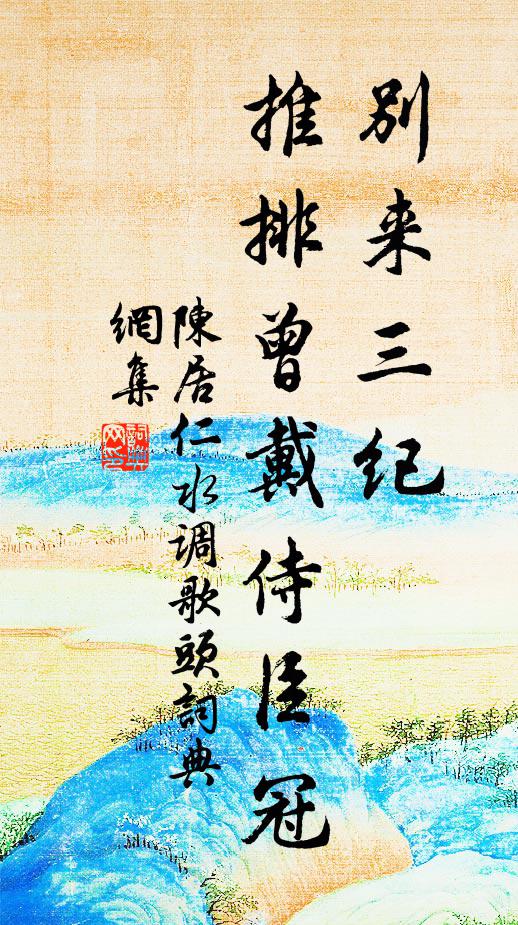 别来三纪
推排曾戴侍臣冠
陳居仁水调歌頭詞典
網集